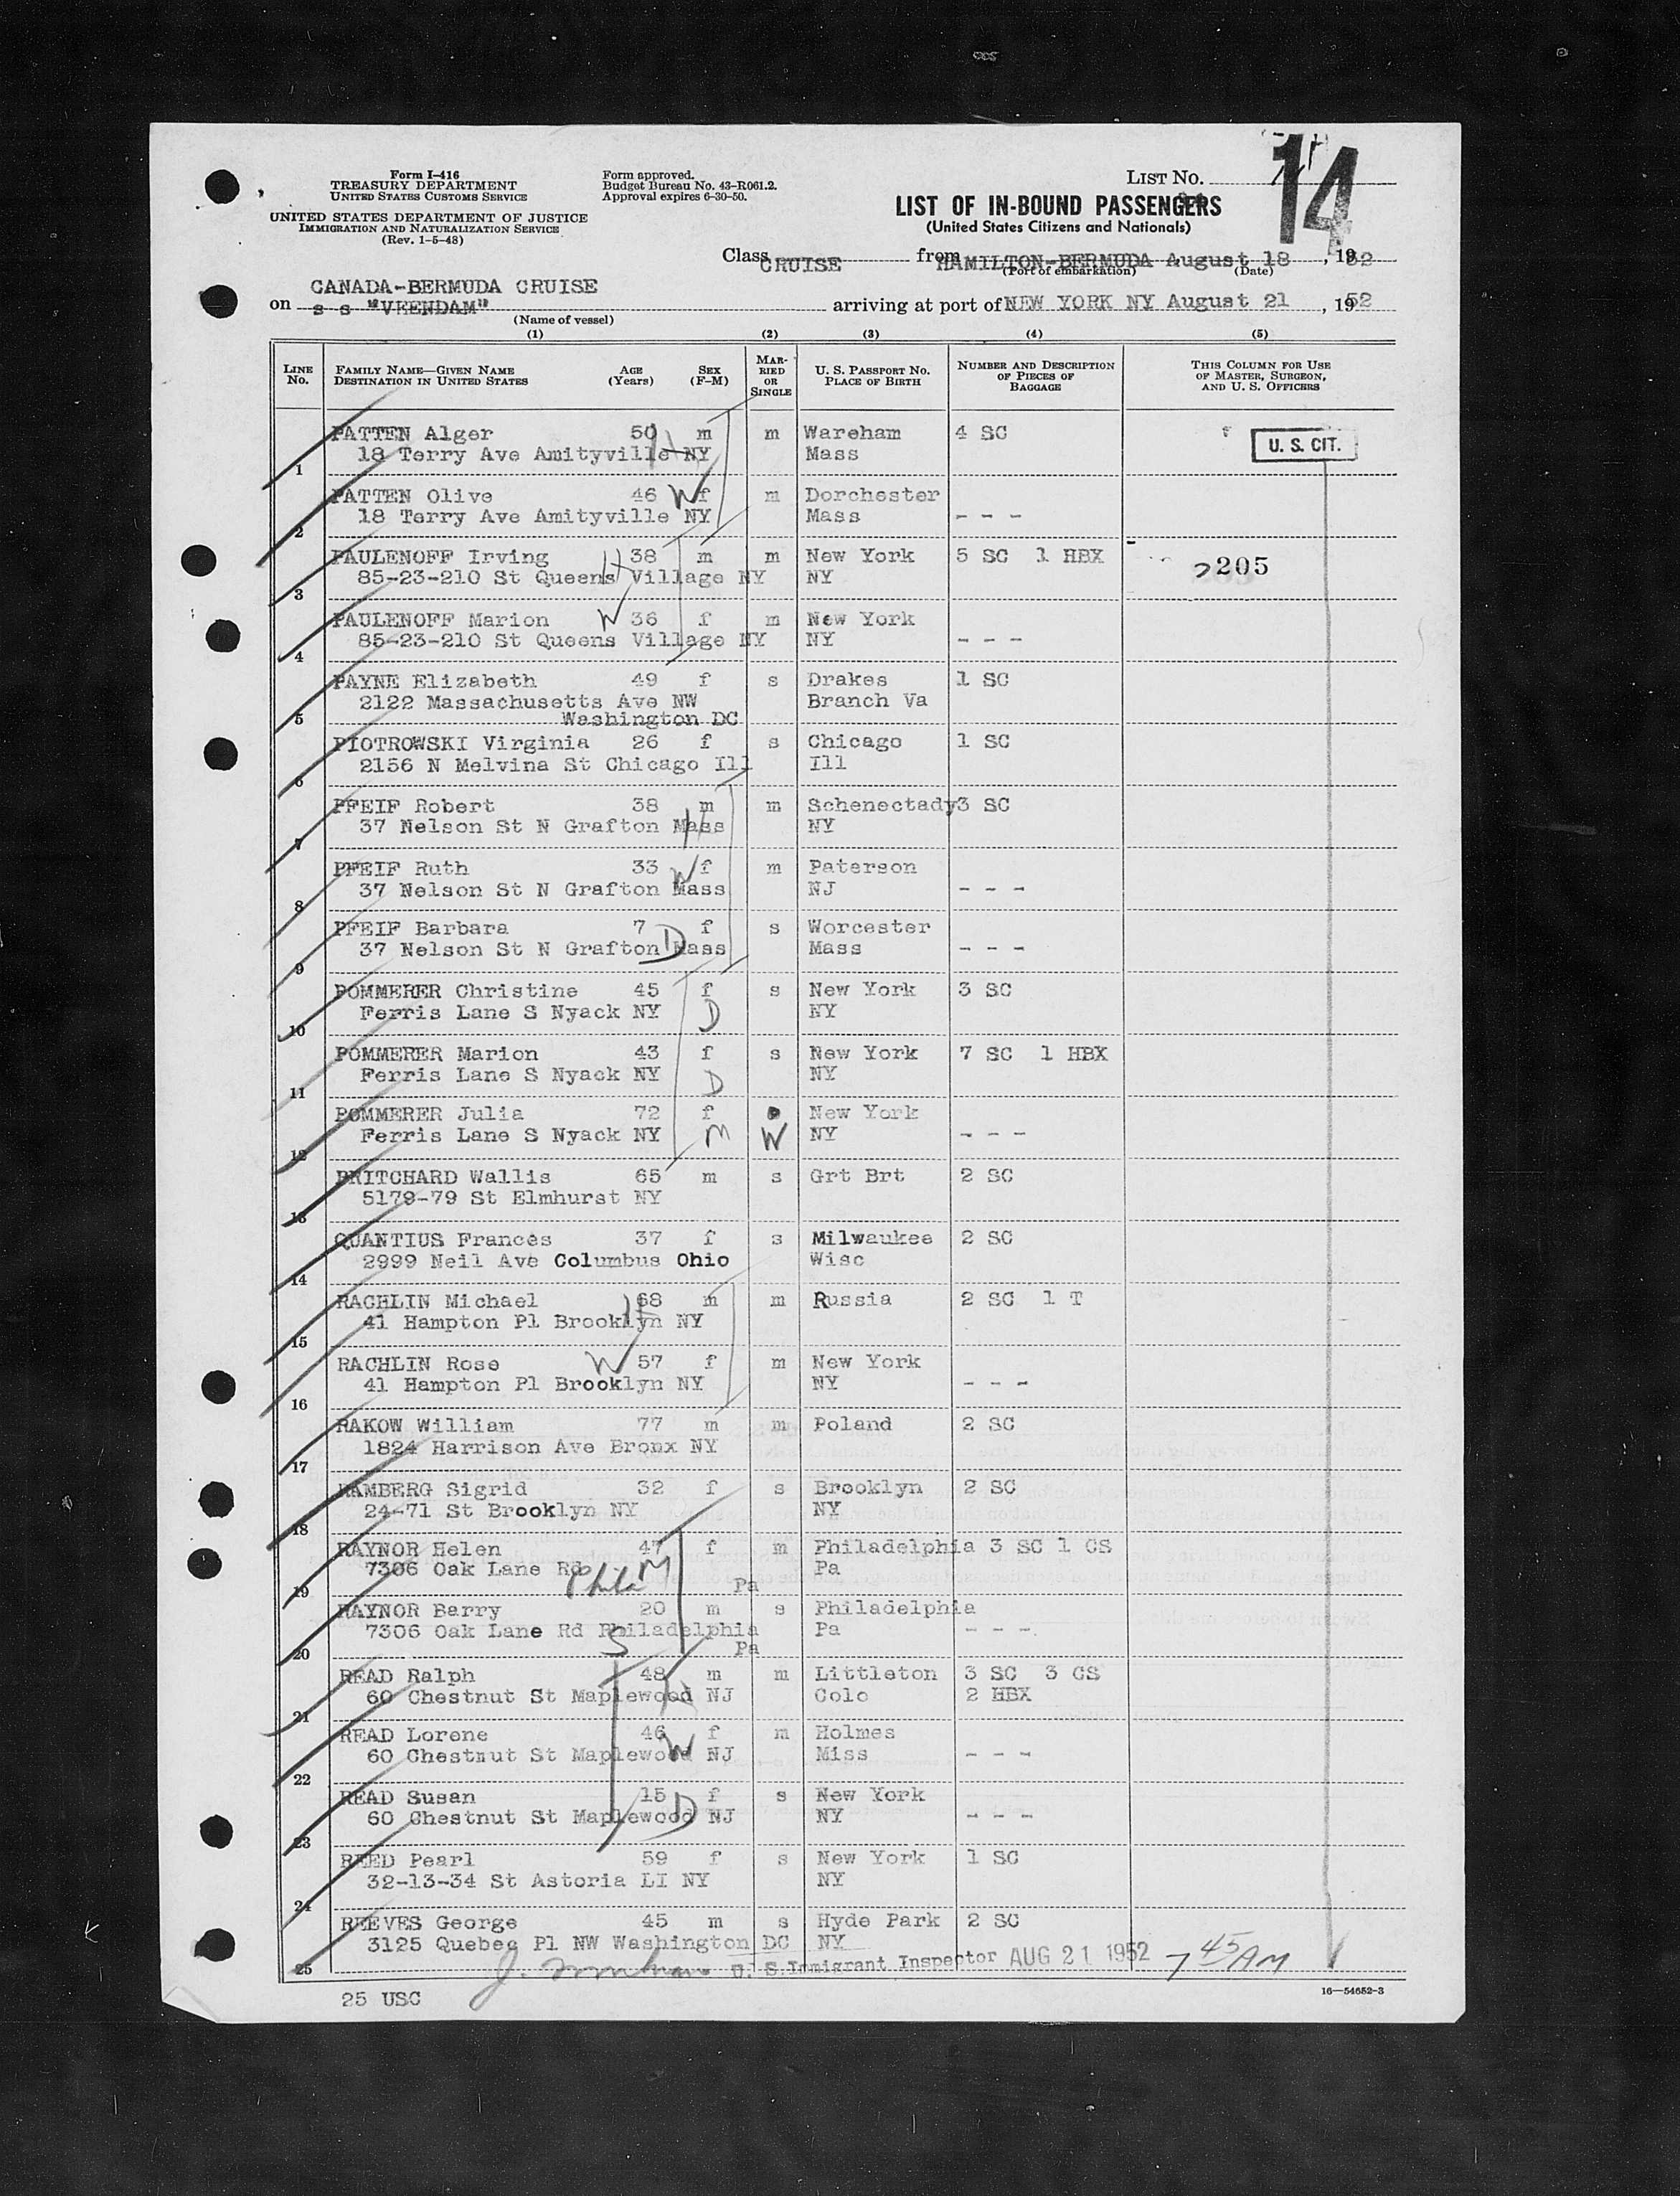 Form I-416
TREASURY DEPARTMENT
UNITED STATES CUSTOMS SERVICE
UNITED STATES DEPARTMENT OF JUSTICE
IMMIGRATION AND NATURALIZATION SERVICE
(Rev. 1-5-48)
Form approved.
Budget Bureau No. 43-R061.2.
Approval expires 6-30-50.
LIST No. 14
LIST OF IN-BOUND PASSENGERS
(United States Citizens and Nationals)
Class CRUISE from HAMILTON-BERMUDA August 18, 1952
(Port of embarkation) (Date)
CANADA-BERMUDA CRUISE
on s s "VEENDAM" arriving at port of NEW YORK NY August 21, 1952
(Name of vessel)
(1) (2) (3) (4) (5)
LINE No. FAMILY NAME—GIVEN NAME DESTINATION IN UNITED STATES AGE (Years) SEX (F-M) MARRIED OR SINGLE U. S. PASSPORT No. PLACE OF BIRTH NUMBER AND DESCRIPTION OF PIECES OF BAGGAGE THIS COLUMN FOR USE OF MASTER, SURGEON, AND U. S. OFFICERS
PATTEN Alger 50 m m Wareham 4 SC U. S. CIT.
1 18 Terry Ave Amityville NY H Mass
PATTEN Olive 46 W f m Dorchester
2 18 Terry Ave Amityville NY Mass - - -
PAULENOFF Irving H 38 m m New York 5 SC 1 HBX 205
3 85-23-210 St Queens Village NY NY
PAULENOFF Marion W 36 f m New York
4 85-23-210 St Queens Village NY NY - - -
PAYNE Elizabeth 49 f s Drakes 1 SC
2122 Massachusetts Ave NW Branch Va
5 Washington DC
PIOTROWSKI Virginia 26 f s Chicago 1 SC
6 2156 N Melvina St Chicago Ill Ill
PFEIF Robert 38 m m Schenectady 3 SC
7 37 Nelson St N Grafton Mass H NY
PFEIF Ruth 33 W f m Paterson
8 37 Nelson St N Grafton Mass NJ - - -
PFEIF Barbara 7 f s Worcester
9 37 Nelson St N Grafton D Mass Mass - - -
POMMERER Christine 45 f s New York 3 SC
10 Ferris Lane S Nyack NY D NY
POMMERER Marion 43 f s New York 7 SC 1 HBX
11 Ferris Lane S Nyack NY D NY
POMMERER Julia 72 f New York
12 Ferris Lane S Nyack NY M W NY - - -
PRITCHARD Wallis 65 m s Grt Brt 2 SC
13 5179-79 St Elmhurst NY
QUANTIUS Frances 37 f s Milwaukee 2 SC
14 2999 Neil Ave Columbus Ohio Wisc
RACHLIN Michael 68 m m Russia 2 SC 1 T
15 41 Hampton Pl Brooklyn NY H
RACHLIN Rose W 57 f m New York
16 41 Hampton Pl Brooklyn NY NY - - -
RAKOW William 77 m m Poland 2 SC
17 1824 Harrison Ave Bronx NY
RAMBERG Sigrid 32 f s Brooklyn 2 SC
18 24-71 St Brooklyn NY NY
RAYNOR Helen 47 f m Philadelphia 3 SC 1 CS
7306 Oak Lane Rd Phila M Pa
19 Pa
RAYNOR Barry 20 m s Philadelphia
7306 Oak Lane Rd Philadelphia S Pa - - -
20 Pa
READ Ralph 48 m m Littleton 3 SC 3 CS
21 60 Chestnut St Maplewood NJ H Colo 2 HBX
READ Lorene 46 f m Holmes
22 60 Chestnut St Maplewood NJ W Miss - - -
READ Susan 15 f s New York
23 60 Chestnut St Maplewood NJ D NY - - -
REED Pearl 59 f s New York 1 SC
24 32-13-34 St Astoria LI NY NY
REEVES George 45 m s Hyde Park 2 SC
25 3125 Quebec Pl NW Washington DC NY
U. S. Immigrant Inspector AUG 21 1952 7 45 AM
25 USC
16—54652-3